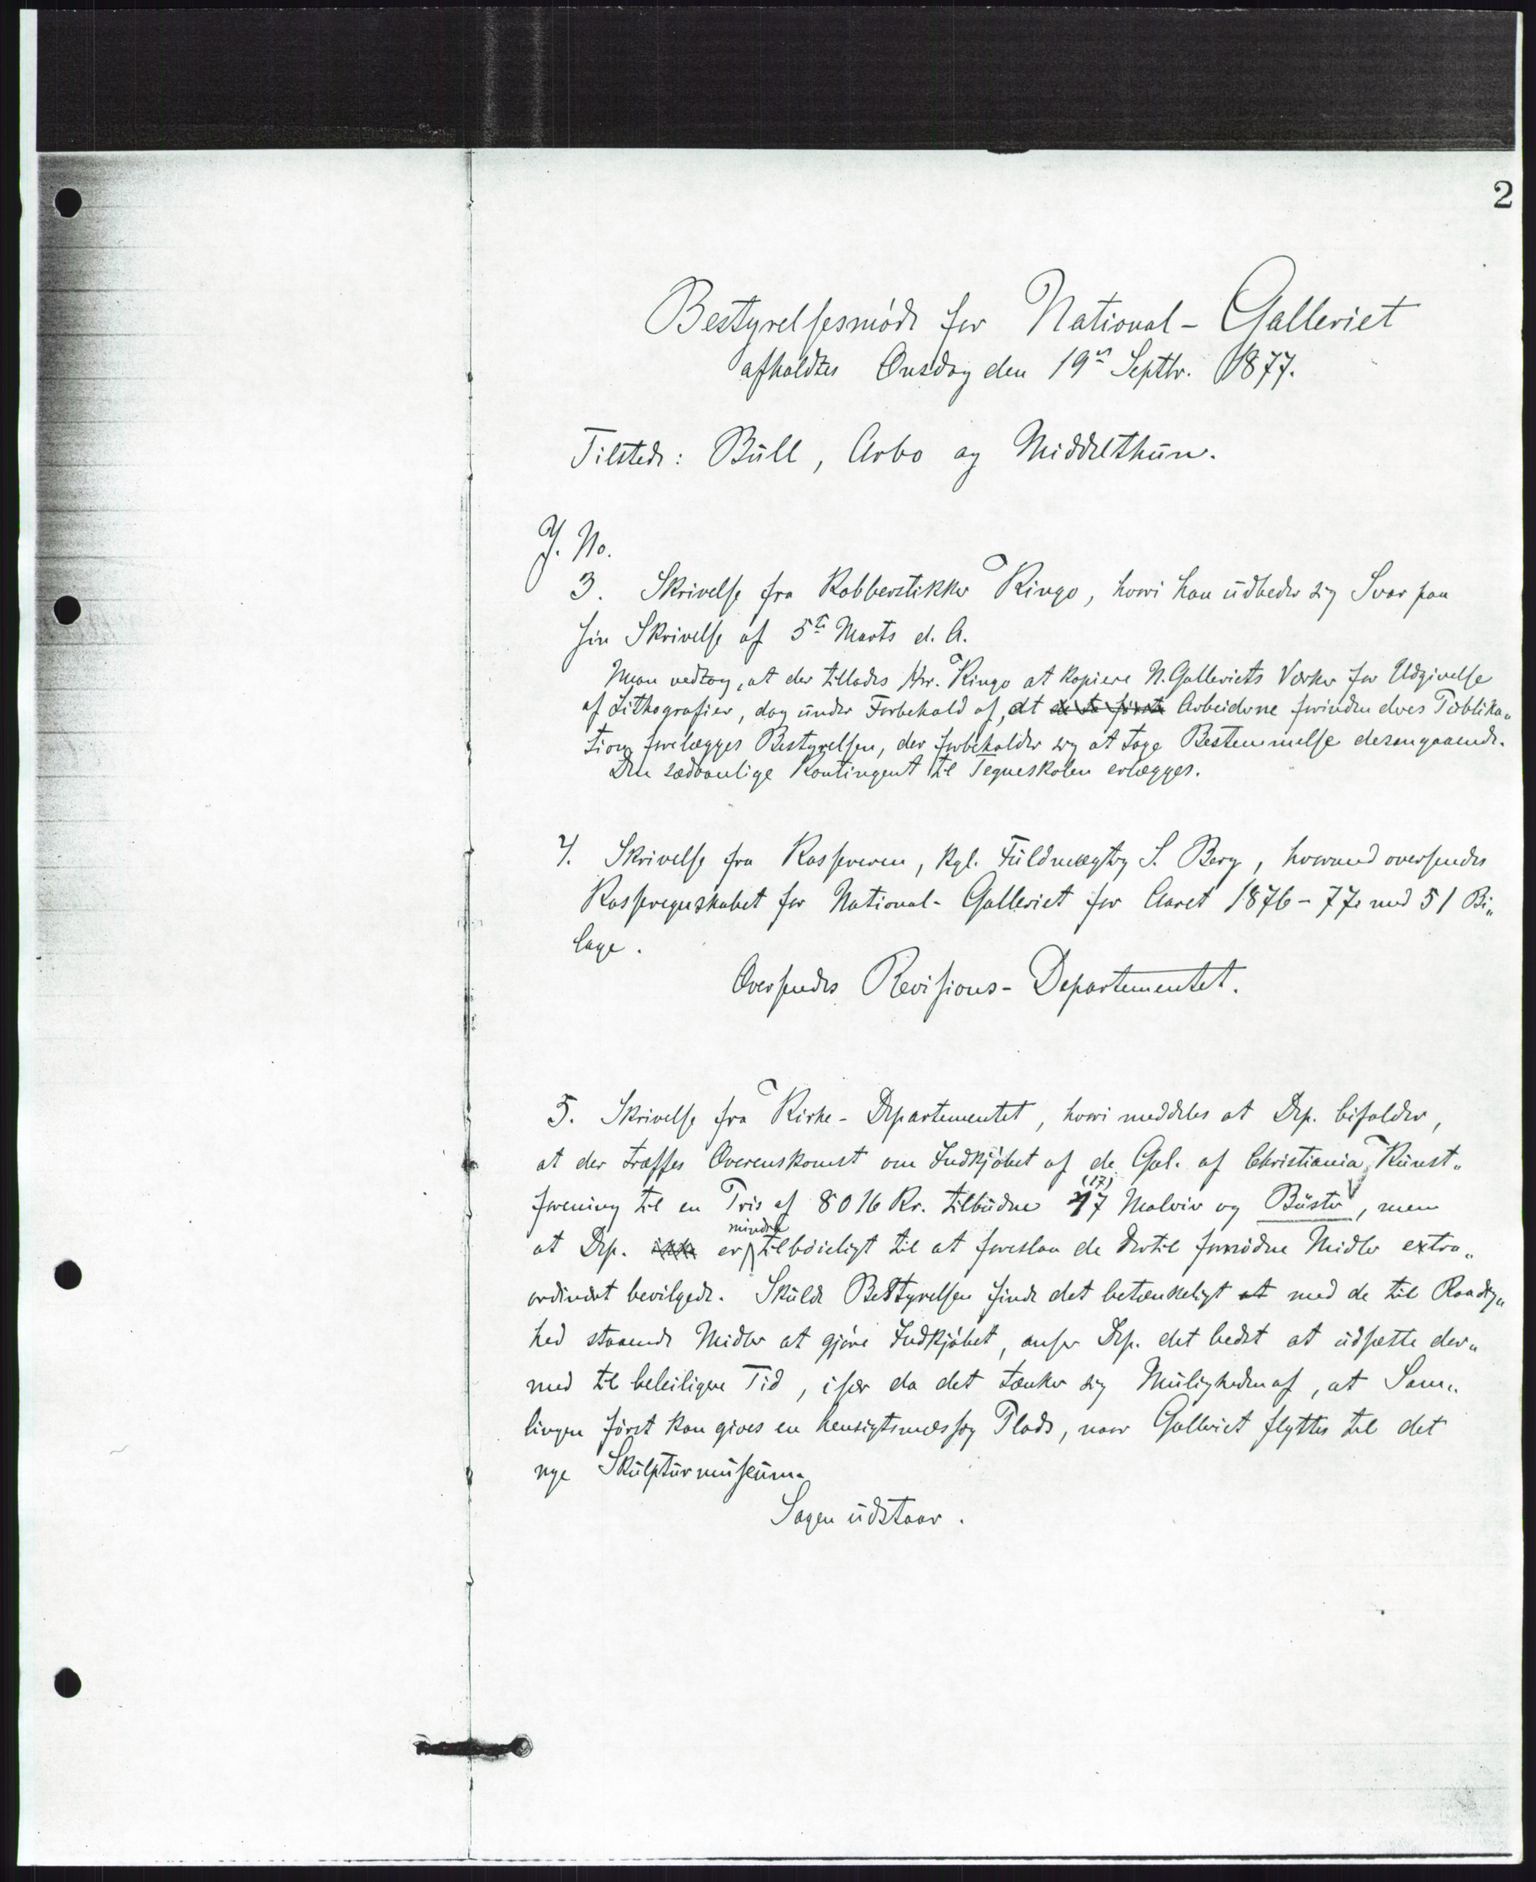 2
Bestyrelsesmöde for National-Galleriet
afholdtes Onsdag den 19de Septbr. 1877.
Tilstede: Bull, Arbo og Middelthun.
J. No.
3. Skrivelse fra Kobberstikker Ringo, hvori han udbeder sig Svar paa
sin Skrivelse af 5te Marts d. A.
Man vedtog, at der tillades Hr. Ringo at kopiere N. Galleriets Værker for Udgivelse
af Lithografier, dog under Forbehold af, at Arbeiderne forinden deres Publika„
tion forelægges Bestyrelsen, der forbeholder sig at tage Bestemmelse desangaaende.
Den sædvanlige Kontingent til Tegneskolen erlægges.
4. Skrivelse fra Kassereren, kgl. Fuldmægtig S. Berg, hvormed oversendes
Kasseregnskabet for National-Galleriet for Aaret 1876-77. med 51 Bi„
lage.
Oversendes Revisions-Departementet.
5. Skrivelse fra Kirke-Departementet, hvori meddeles at Dep. bifalder,
at der træffes Overenskomst om Indkjöbet af de Gal. af Christiania Kunst„
forening til en Pris af 8016 Kr. tilbudne 17 (17) Malerier og Büster, men
at Dep. er mindre tilböieligt til at foreslaa de dertil fornödne Midler extra„
ordinært bevilgede. Skulde Bestyrelsen finde det betænkeligt at med de til Raadig„
hed staaende Midler at gjöre Indkjöbet, anser Dep. det bedst at udsætte der„
med til beleiligere Tid, især da det tænker sig Muligheden af, at Sam„
lingen först kan gives en hensigtsmæssig Plads, naar Galleriet flyttes til det
nye Skulpturmuseum.
Sagen udstaar.